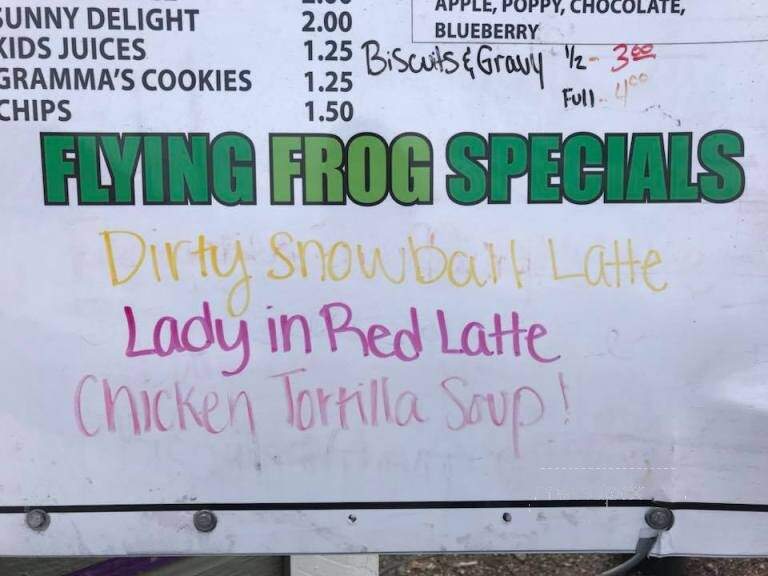 SUNNY DELIGHT 2.00
KIDS JUICES 1.25
GRAMMA'S COOKIES 1.25
CHIPS 1.50
APPLE, POPPY, CHOCOLATE,
BLUEBERRY
Biscuits & Gravy 1/2 - 3.00
Full - 4.00
FLYING FROG SPECIALS
Dirty Snowball Latte
Lady in Red Latte
Chicken Tortilla Soup!